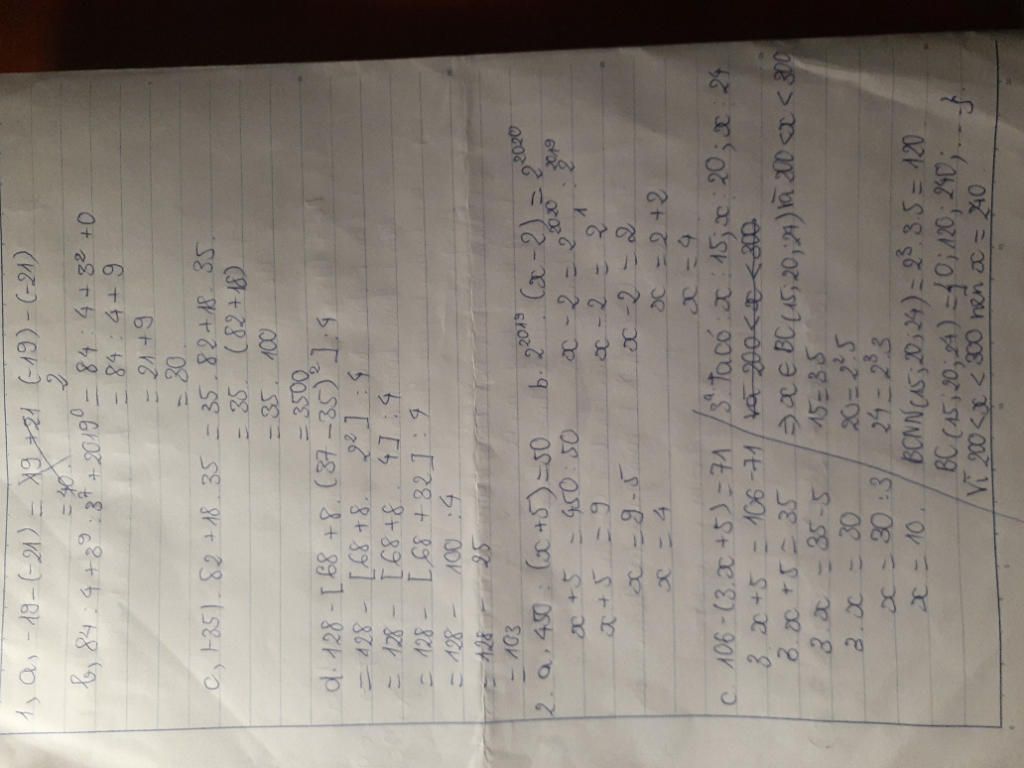 1, a, -18-(-21) = X9+21 (-19)-(-21)
= 40 2
b, 84 : 4 + 3⁹ : 3⁷ + 2019⁰ = 84 : 4 + 3² + 0
= 84 : 4 + 9
= 21 + 9
= 30
c, |-35| . 82 + 18 . 35 = 35 . 82 + 18 . 35
= 35 . (82 + 18)
= 35 . 100
= 3500
d. 128 - [68 + 8 . (37 - 35)²] : 4
= 128 - [68 + 8 . 2²] : 4
= 128 - [68 + 8 . 4] : 4
= 128 - [68 + 32] : 4
= 128 - 100 : 4
= 128 - 25
= 103
2. a, 450 : (x + 5) = 50
x + 5 = 450 : 50
x + 5 = 9
x = 9 - 5
x = 4
b. 2²⁰¹⁹ . (x - 2) = 2²⁰²⁰
x - 2 = 2²⁰²⁰ : 2²⁰¹⁹
x - 2 = 2¹
x - 2 = 2
x = 2 + 2
x = 4
c. 106 - (3.x + 5) = 71
3.x + 5 = 106 - 71
3.x + 5 = 35
3.x = 35 - 5
3.x = 30
x = 30 : 3
x = 10
3a, Ta có x ⋮ 15; x ⋮ 20; x ⋮ 24
và 200 < x < 300
=> x ∈ BC(15; 20; 24) và 200 < x < 300
15 = 3.5
20 = 2².5
24 = 2³.3
BCNN(15, 20, 24) = 2³ . 3 . 5 = 120
BC(15; 20; 24) = { 0; 120; 240; .... }
Vì 200 < x < 300 nên x = 240